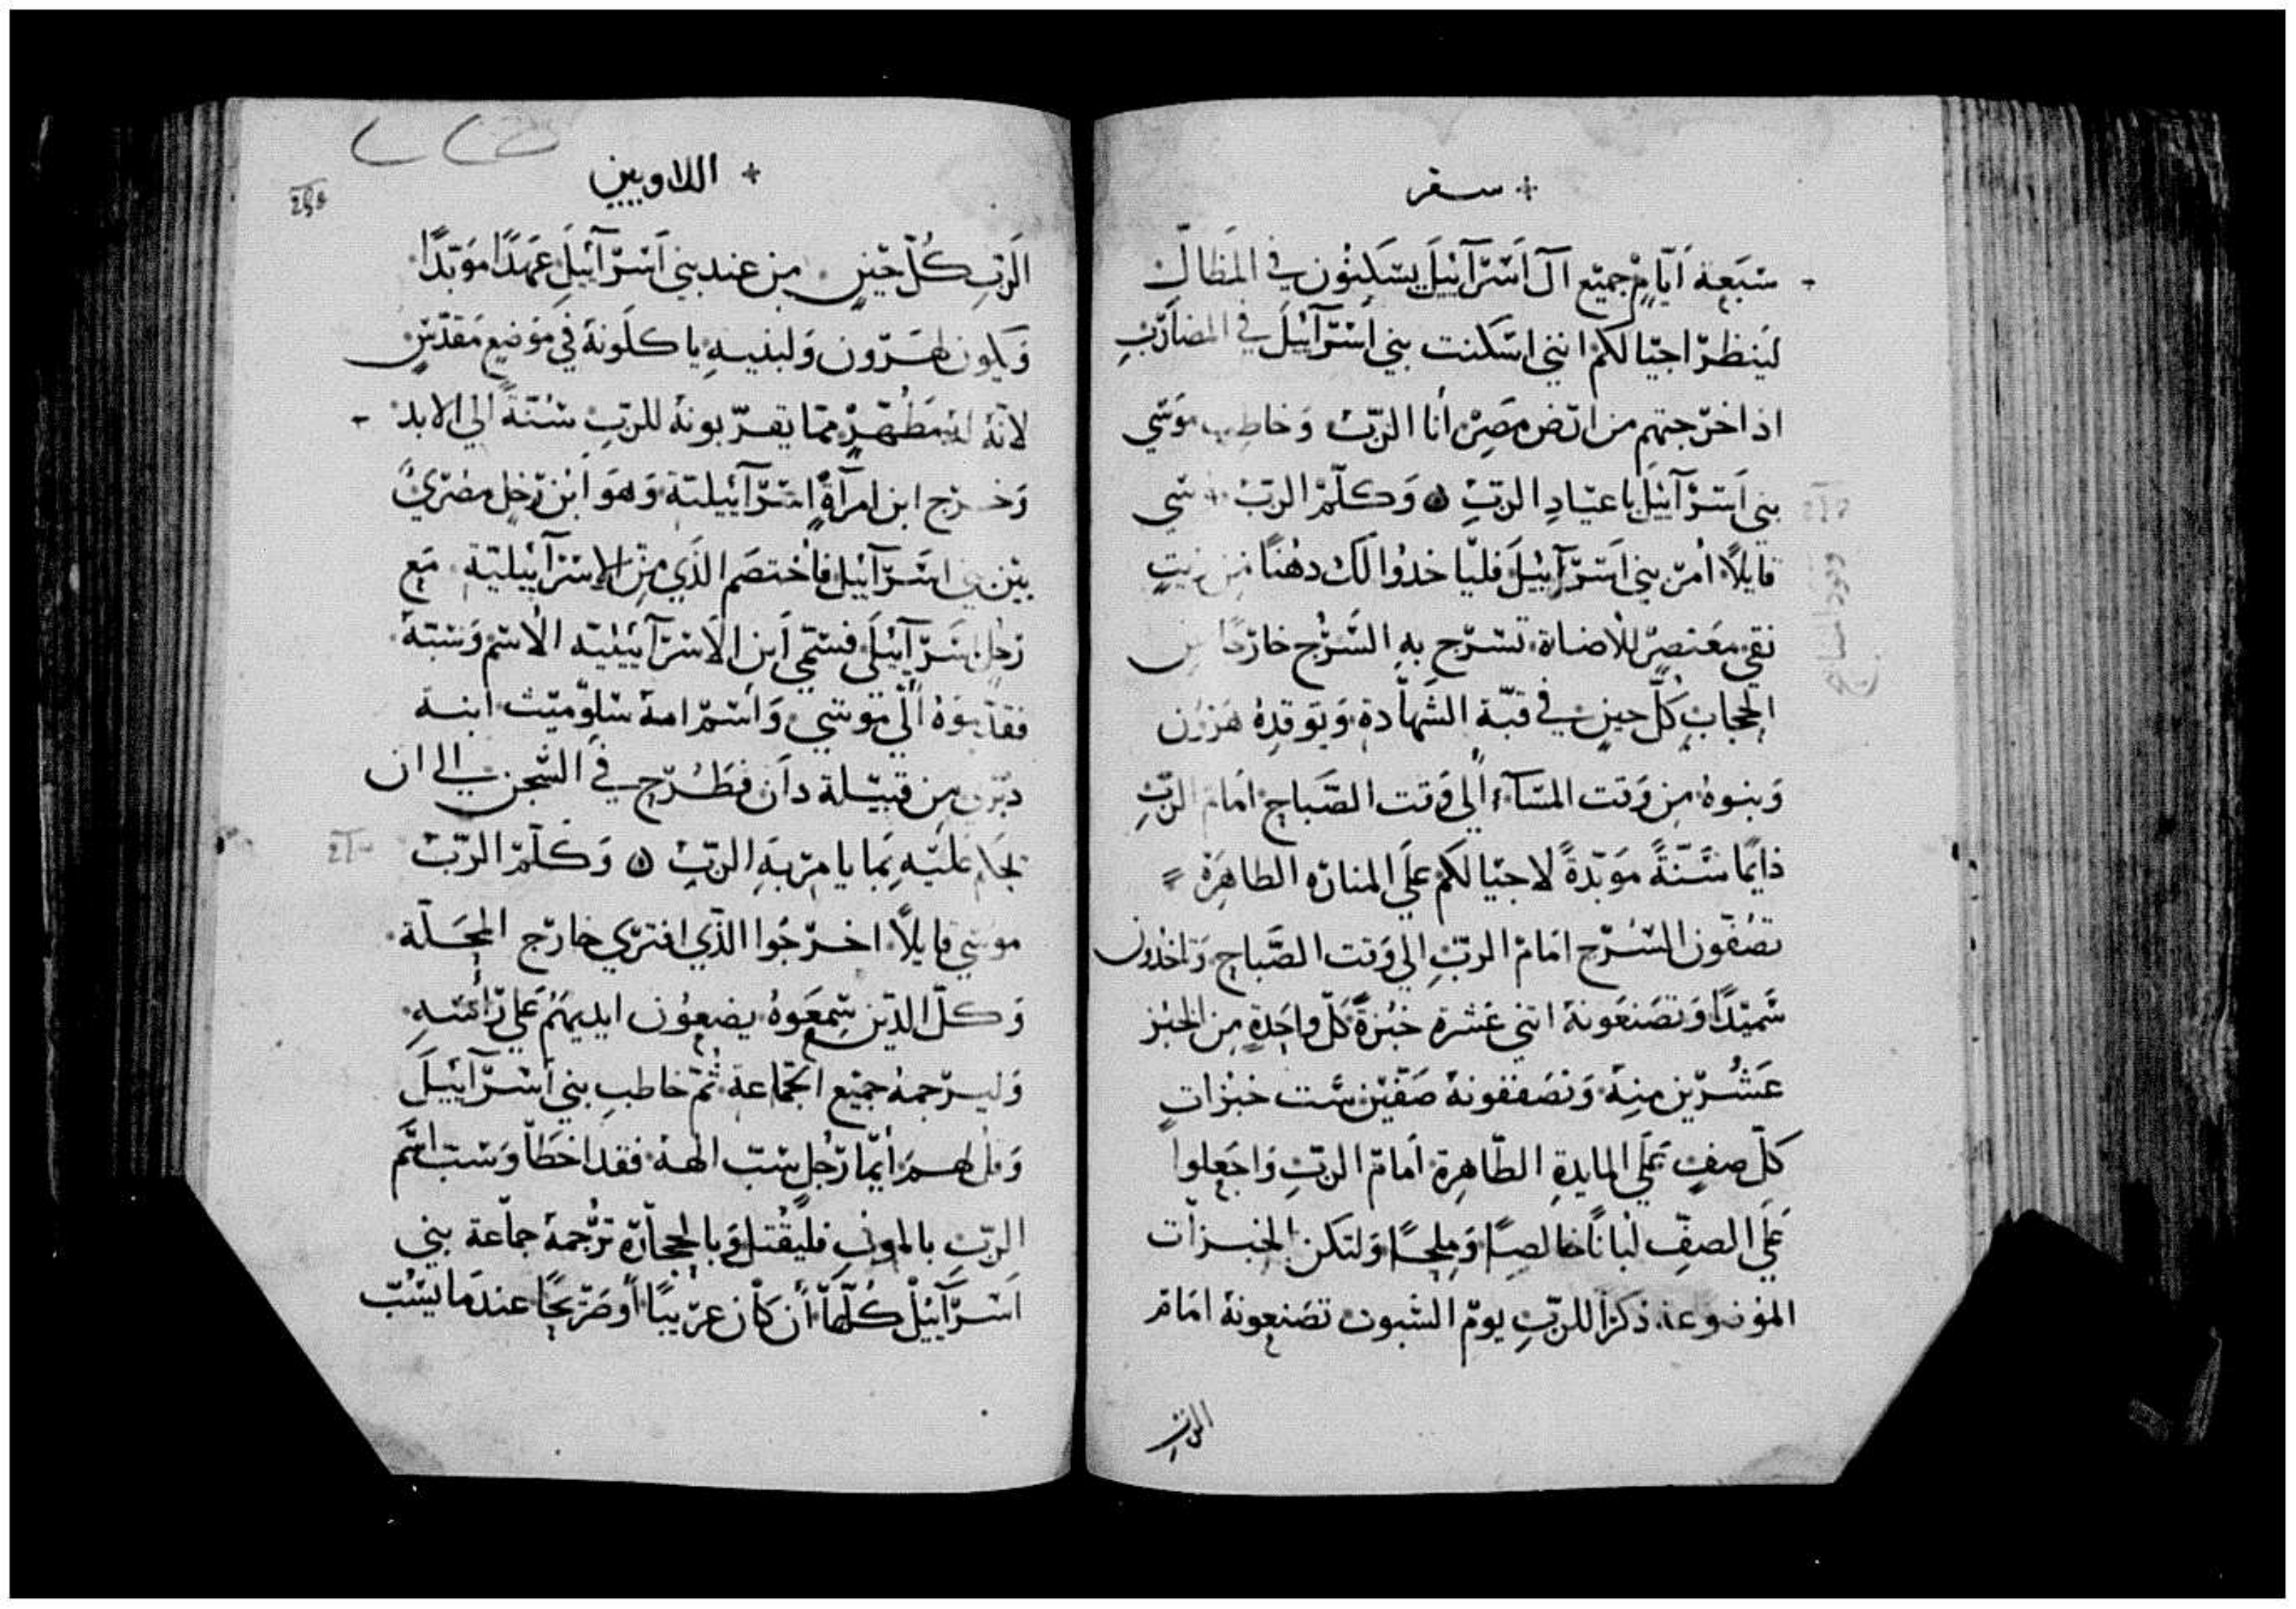 + سفر
سَبعة اَيّامٍ جميع آل اَسْرآئيلَ يسَكنُون في المَظالّ
لينظرْ اجيالكم انني اسَكنت بني اَسْرآئيلَ في المضاربِ
اذ اخرجتهم من ارض مَصِرْ أنا الربّ وَخاطب موَسي
بني اَسرآئيلَ باعيَادِ الربِّ ۞ وَكلّمْ الربّ موسي
قايلاً أمرْ بني اَسرآئيلَ فليَاخدُوا لك دهُناً من زيتٍ
نقي معَتصِرْ للاضاة تسرَج بهِ السُرُج خارجًا من
الحجابِ كلّ حينٍ في قبّة الشهادة وَيوَقدِهُ هَرَون
وَبنوهُ من وَقت المسَآء اَلي وَقت الصّباح امَام الربِّ
دَايمًا سُنّةً موَبّدةً لاجيالكم علَي المنارَه الطاهِرَة =
تصُفّون السُرُج امَام الربِّ الي وَقت الصّباح وَتاخدُون
سَميَدًا وَتصَنعَونهُ اثني عَشرة خبُزةً كلّ واحَدةٍ من الخبُز
عَشُرين منِهُ وَتصَففونهُ صَفّيْن سَت خبُزاتٍ
كلّ صفٍ عَلي المايدةِ الطّاهِرة امَام الربِّ وَاجَعِلوا
عَلَي الصفِّ لبُاناً خالصاً وَملِحًا وَلتكن الخبزات
الموُضوعة ذكراً للربِّ يومْ السُبوت تصَنعونهُ امَام
الربّ
+ اللاويين
٢٤٥
الَربِّ كُلّ حَيْنٍ من عند بني اَسْرآئيلَ عَهدًا موَبّدًا
وَيكون لهَرون وَلبنيهِ ياكلَونهُ في موَضعٍ مَقدّسٍ
لانهّ مما يقرّبونهُ للربّ سُنّةً الي الابد
وَخرج ابن امرآةٍ اسْرآئيلية وَهوَ ابْن رَجُلٍ مصْريٍ
بيَن بني اسَرآئيل فأختصَم الذَي منَ الاسْرآئيلية مَع
رَجُل اسَرآئيلَي فسَمّي اَبن الاَسْرآئيلية الاسْم وَسَبّهُ
فقدّموَهُ اَلَي موسَي وَأسَمْ امهُ سَلوّميَت ابنة
دبّري من قبيَلة دَان فطُرح في السَجن الي ان
يحَكم عَليَه بَما يامرْ بهَ الربّ ۞ وَكلّمْ الربّ
موسَي قايلاً اخرجُوا الذَّي افتري خارج المحَلّة
وَكلّ الذيَن سَمعَوهُ يضعوُن ايديهَمُ عَلي رأسَهِ
وَليرجمهُ جميَع الجمَاعة ثُمّ خاطبِ بني اَسْرآئيلَ
وَقل لهم أيّما رَجُلٍ سَب الههُ فقد اخطَأ وَسَب اسَم
الربِّ بالموت فليُقتل وَبالحجاَرة ترَجمهُ جماَعة بني
اَسْرآئيْل كُلّها أن كاْن غريَبًا أو صَريحًا عندمَا يسُبّ